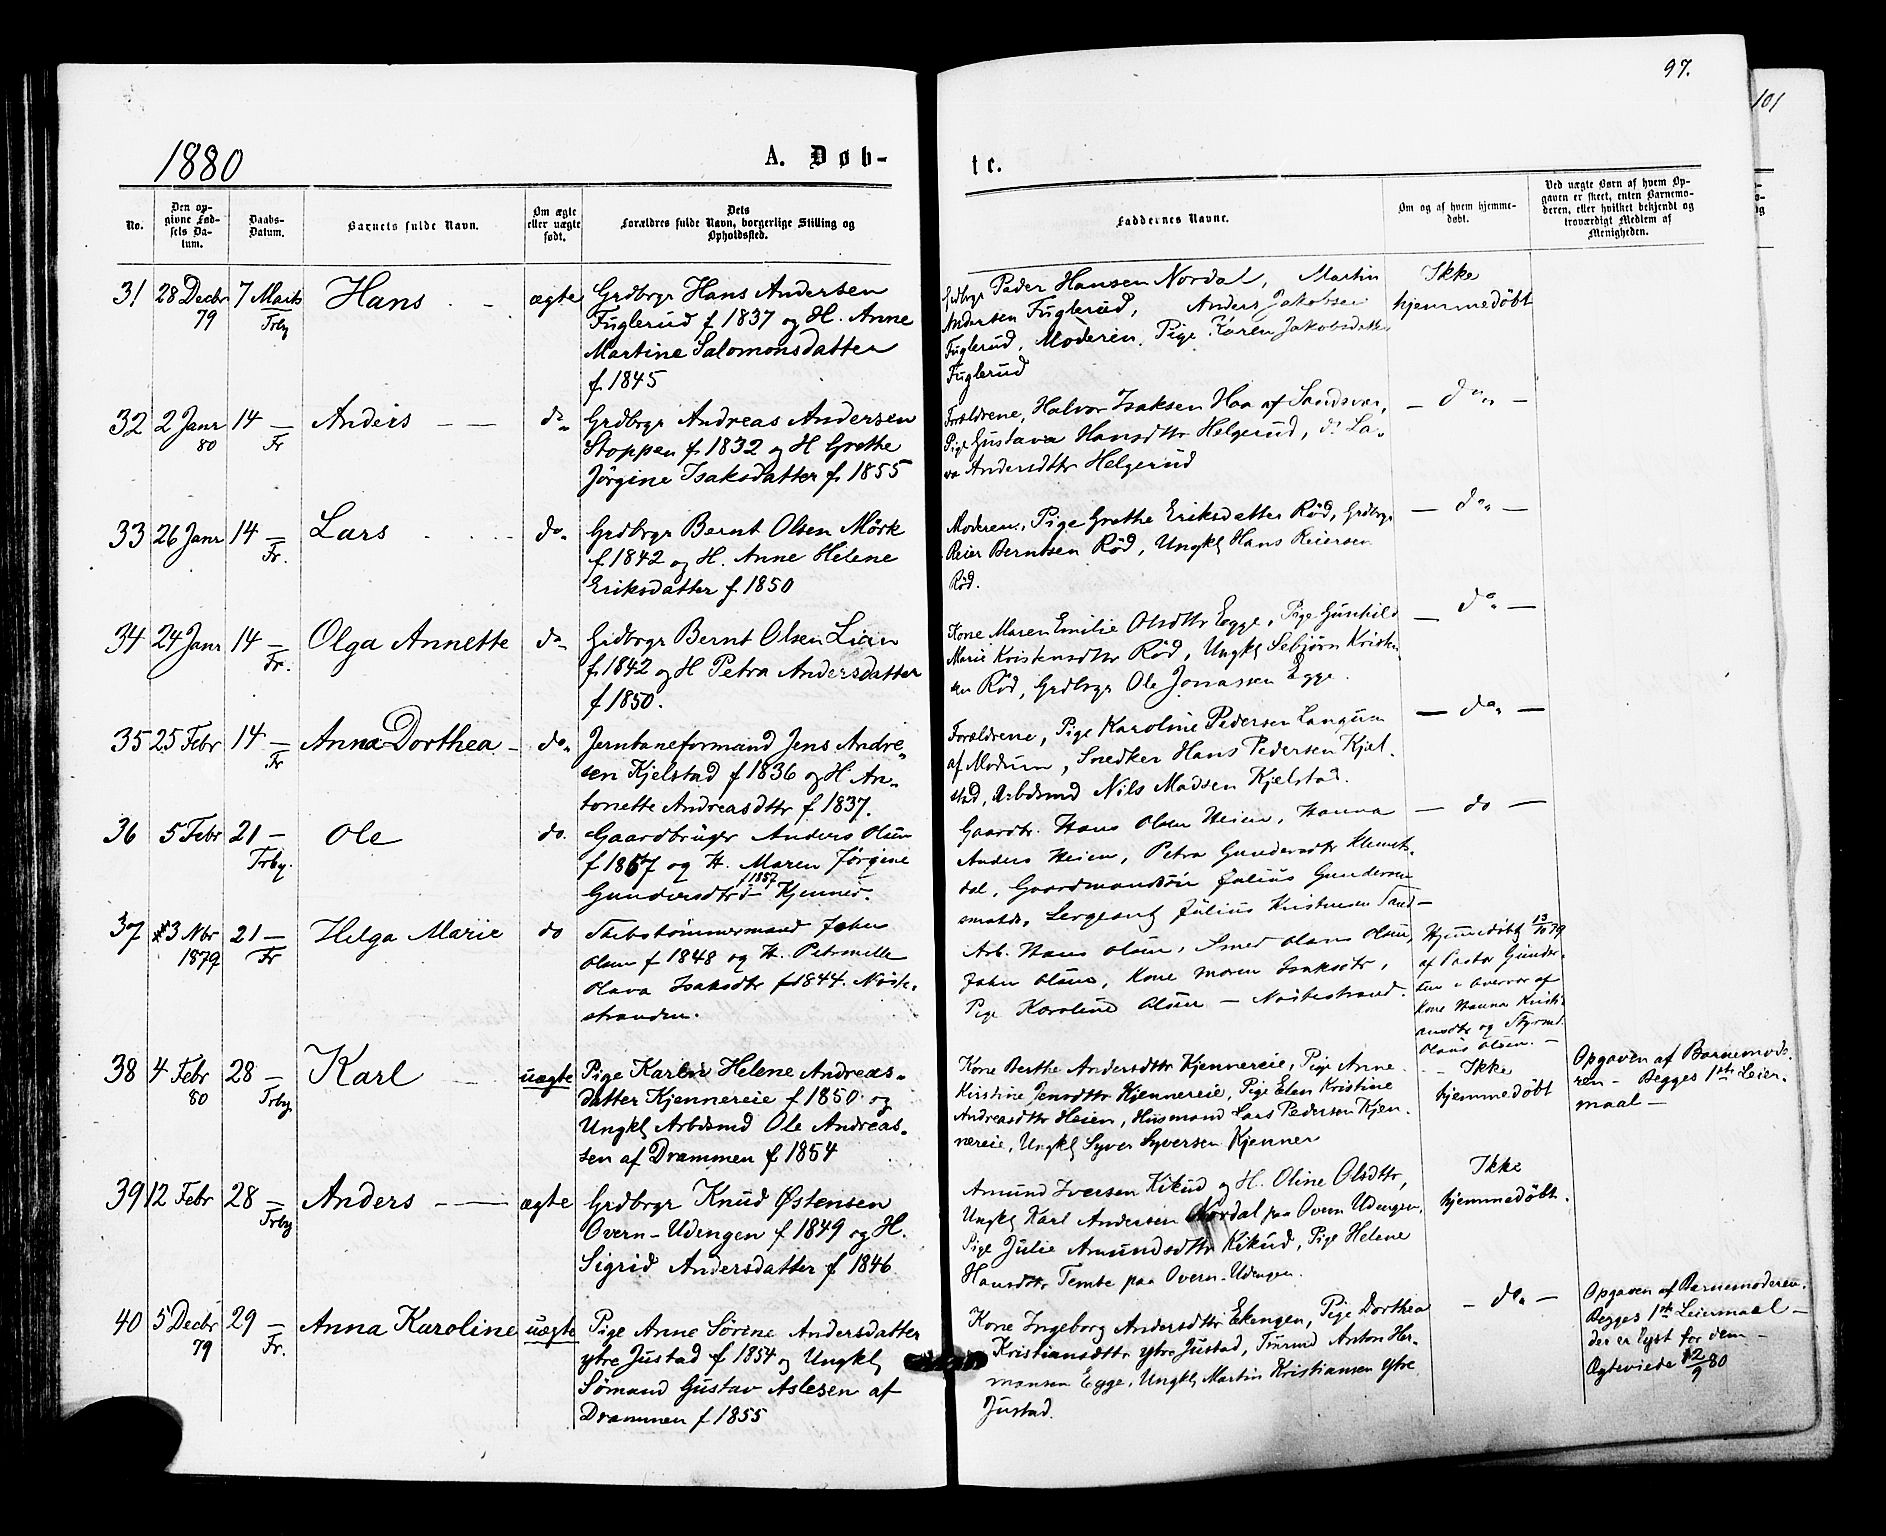 97.
101
1880
A. Døb-
te.
No.
Den op-
givne Fød-
sels Da-
tum.
Daabs-
Datum.
Barnets fulde Navn.
Om ægte
eller uægte
født.
Dets
Forældres fulde Navn, borgerlige Stilling og
Opholdssted.
Faddernes Navne.
Om og af hvem hjemme-
døbt.
Ved uægte Børn af hvem Op-
gaven er skeet, enten Barnemo-
deren, eller hvilket bekjendt og
troværdigt Medlem af
Menigheden.
31
28 Decbr
79
7 Marts
Frby
Hans
ægte
Grdbrgr Hans Andersen
Fuglerud f 1837 og H. Anne
Martine Salomonsdatter
f. 1845
Grdbrgr Peder Hansen Nordal, Martin
Andersen Fuglerud, Anders Jakobsen
Fuglerud, Moderen, Pige Karen Jakobsdatter
Fuglerud
Ikke
hjemmedøbt
32
2 Janr
80
14 —
Fr
Anders — —
do
Grdbrgr Andreas Andersen
Stoppen f. 1832 og H Grethe
Jørgine Isaksdatter f. 1855
Forældrene, Halvor Isaksen Haa af Sandsvær,
Pige Gustava Hansdttr Helgerud, do La-
va Andersdttr Helgerud
— do —
33
26 Janr
14 —
Fr.
Lars
do.
Grdbrgr Bernt Olsen Mörk
f. 1842 og H. Anne Helene
Eriksdatter f 1850
Moderen, Pige Grethe Eriksdatter Rød, Grdbrgr
Reier Berntsen Rød, Ungkl Hans Reiersen
Rød.
— do —
34
24 Janr
14 —
Fr.
Olga Annette
do
Grdbrgr Bernt Olsen Lian
f. 1842 og H Petra Andersdatter
f 1850.
Kone Maren Emilie Olsdttr Egge, Pige Gunhild
Marie Kristensdttr Rød, Ungkl Sebjørn Kristi-
an Rød, Grdbrgr Ole Jonassen Egge.
— do —
35
25 Febr
14 —
Fr
Anna Dorthea —
do.
Jernbaneformand Jens Andre-
sen Kjelstad f 1836 og H An-
tonette Andreasdttr f 1837.
Forældrene, Pige Karoline Pedersen Langum
af Modum, Snedker Hans Pedersen Kjel-
stad, Arbdsmd Nils Madsen Kjelstad.
— do —
36
5 Febr
21 —
Frby.
Ole
do.
Gaardbruger Anders Olsen
f 1857 og H. Maren Jørgine
f 1857
Gundersdtr Kjenner.
Gaardbr. Hans Olsen Heien, Hanna
Anders Heien, Petra Gundersdtr Klemets-
dal, Gaardmandssøn Julius Gundersen
Sergeant Julius Kristensen
— do —
37
3 Nbr
1879
21 —
Fr
Helga Marie
do
Skibstømmermand Johan
Olsen f 1848 og H. Petronille
Olava Isaksdtr f 1844. Nøste-
stranden.
Arb. Hans Olsen, Smed Olaus Olsen,
Johan Olsen, Kone Maren Isaksdtr,
Pige Karoline Olsen — Nøstestrand.
Hjemmedøbt 13/11 79
af Pastor Gunder-
sen i Overvær af
Kone Hanna Kristi-
ansdtr og Styrmd.
Olaus Olsen. —
38
4 Febr
80
28 —
Frby
Karl
uægte
Pige Karen Helene Andreas-
datter Kjennereie f 1850 og
Ungkl Arbdsmd Ole Andreas-
sen af Drammen f 1854
Kone Berthe Andersdttr Kjennereie, Pige Anne
Kirstine Jensdttr Kjennereie, Pige Elen Kristine
Andreasdttr Heien, Husmand Lars Pedersen Kjen-
nereie, Ungkl Syver Syversen Kjenner
Ikke
hjemmedøbt
Opgaven af Barnemode-
ren — Begges 1ste Leier-
maal —
39
12 Febr
28 —
Frby
Anders — —
ægte
Grdbrgr Knud Østensen
Overn-Udengen f 1849 og H.
Sigrid Andersdatter f 1846
Amund Iversen Kikud og H. Oline Olsdttr,
Ungkl Karl Andersen Nordal paa Overn Udengen,
Pige Julie Amundsdttr Kikud, Pige Helene
Hansdttr Temte paa Overn-Udengen.
Ikke
hjemmedøbt.
40
5 Decbr
79
29 —
Fr.
Anna Karoline
uægte
Pige Anne Sörine Andersdatter
ytre Justad f 1854 og Ungkl
Sömand Gustav Aslesen af
Drammen f 1855
Kone Ingeborg Andersdttr Ekengen, Pige Dorthea
Kristiansdttr ytre Justad, Anton Her-
mansen Egge, Ungkl Martin Kristiansen ytre
Justad.
— do —
Opgaven af Barnemoderen.
Begges 1ste Leiermaal —
der er lyst for dem —
Ægteviede 12/9 80